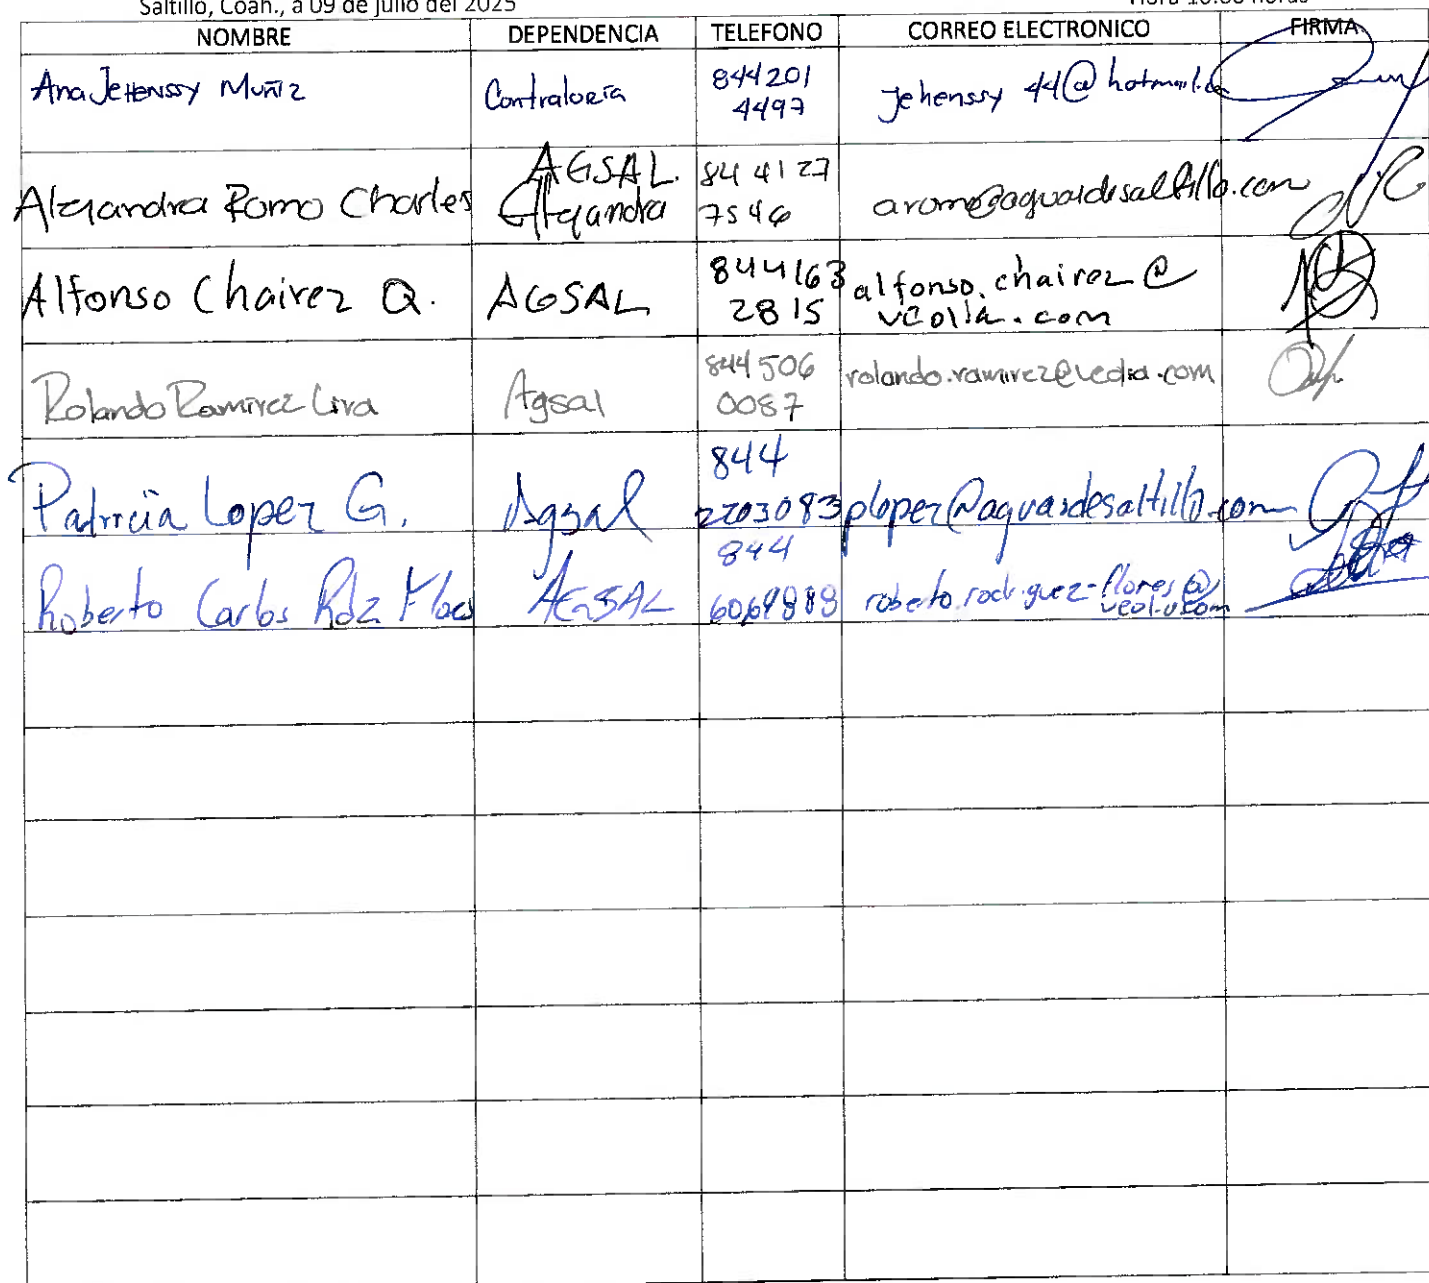 Saltillo, Coah., a 09 de julio del 2025
NOMBRE DEPENDENCIA TELEFONO CORREO ELECTRONICO FIRMA
Ana Jehenssy Muñiz Contraloría 844201 4497 jehenssy 44@hotmail.co
Alejandra Romo Charles AGSAL. Alejandra 844 4127 7546 aromo@aguasdesaltillo.com
Alfonso Chairez Q. AGSAL 844163 2815 alfonso.chairez@
veolia.com
Rolando Ramirez Lira Agsal 844506 0087 rolando.ramirez@veolia.com
Patricia Lopez G. Agsal 844 2203083 plopez@aguasdesaltillo.com
Roberto Carlos Rdz AGSAL 844 roberto.rodriguez-flores@
veolia.com